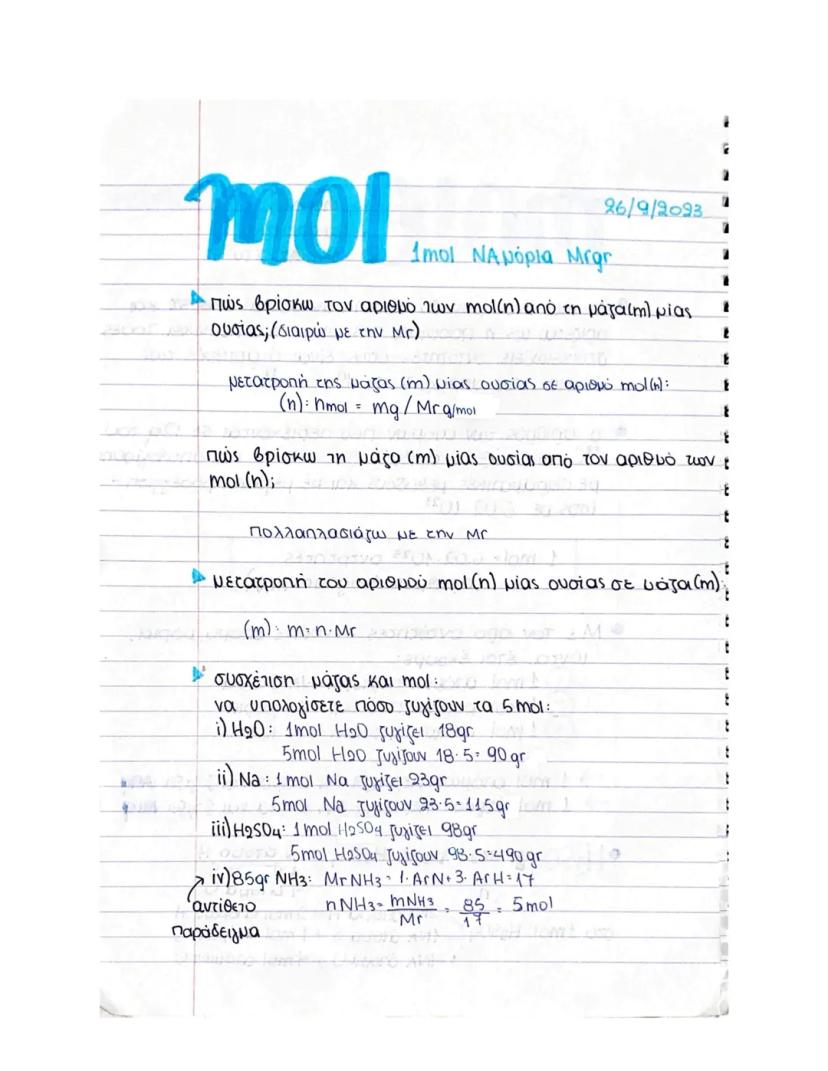 mol
26/9/2023
1mol NAμόρια Mrgr
πώς βρίσκω τον αριθμό των mol(n) από τη μάζα(m) μίας
ουσίας; (διαιρώ με την Mr)
μετατροπή της μάζας (m) μίας ουσίας σε αριθμό mol(n):
(n): nmol = mg/Mrg/mol
πώς βρίσκω τη μάζα (m) μίας ουσίας από τον αριθμό των
mol (n);
πολλαπλασιάζω με την Mr
μετατροπή του αριθμού mol(n) μίας ουσίας σε μάζα(m):
(m): m=n·Mr
συσχέτιση μάζας και mol:
να υπολογίσετε πόσο ζυγίζουν τα 5mol:
i) H2O: 1mol H2O ζυγίζει 18gr
5mol H2O ζυγίζουν 18·5=90gr
ii) Na: 1mol Na ζυγίζει 23gr
5mol Na ζυγίζουν 23·5=115gr
iii) H2SO4: 1mol H2SO4 ζυγίζει 98gr
5mol H2SO4 ζυγίζουν 98·5=490gr
iv) 85gr NH3: MrNH3=1·ArN+3·ArH=17
αντίθετο παράδειγμα
nNH3=mNH3/Mr=85/17=5mol